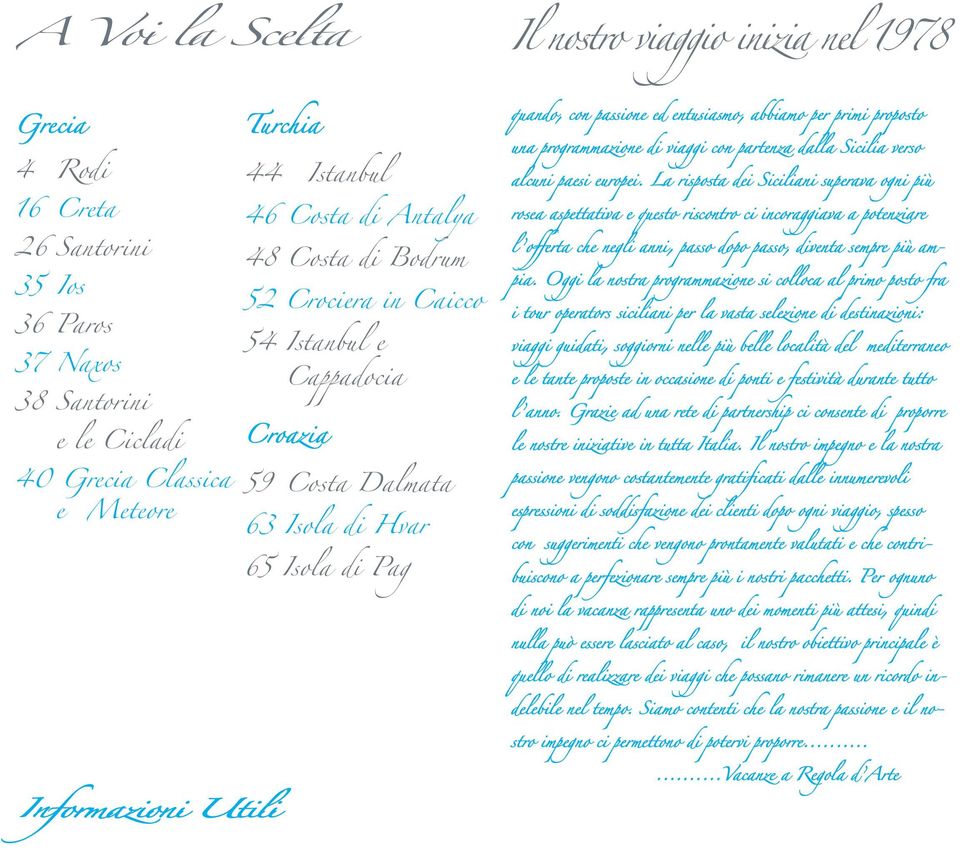 A Voi la Scelta
Grecia
4 Rodi
16 Creta
26 Santorini
35 Ios
36 Paros
37 Naxos
38 Santorini
e le Cicladi
40 Grecia Classica
e Meteore
Turchia
44 Istanbul
46 Costa di Antalya
48 Costa di Bodrum
52 Crociera in Caicco
54 Istanbul e
Cappadocia
Croazia
59 Costa Dalmata
63 Isola di Hvar
65 Isola di Pag
Informazioni Utili
Il nostro viaggio inizia nel 1978
quando, con passione ed entusiasmo, abbiamo per primi proposto
una programmazione di viaggi con partenza dalla Sicilia verso
alcuni paesi europei. La risposta dei Siciliani superava ogni più
rosea aspettativa e questo riscontro ci incoraggiava a potenziare
l'offerta che negli anni, passo dopo passo, diventa sempre più am-
pia. Oggi la nostra programmazione si colloca al primo posto fra
i tour operators siciliani per la vasta selezione di destinazioni:
viaggi guidati, soggiorni nelle più belle località del mediterraneo
e le tante proposte in occasione di ponti e festività durante tutto
l'anno. Grazie ad una rete di partnership ci consente di proporre
le nostre iniziative in tutta Italia. Il nostro impegno e la nostra
passione vengono costantemente gratificati dalle innumerevoli
espressioni di soddisfazione dei clienti dopo ogni viaggio, spesso
con suggerimenti che vengono prontamente valutati e che contri-
buiscono a perfezionare sempre più i nostri pacchetti. Per ognuno
di noi la vacanza rappresenta uno dei momenti più attesi, quindi
nulla può essere lasciato al caso, il nostro obiettivo principale è
quello di realizzare dei viaggi che possano rimanere un ricordo in-
delebile nel tempo. Siamo contenti che la nostra passione e il no-
stro impegno ci permettono di potervi proporre..........
..........Vacanze a Regola d'Arte